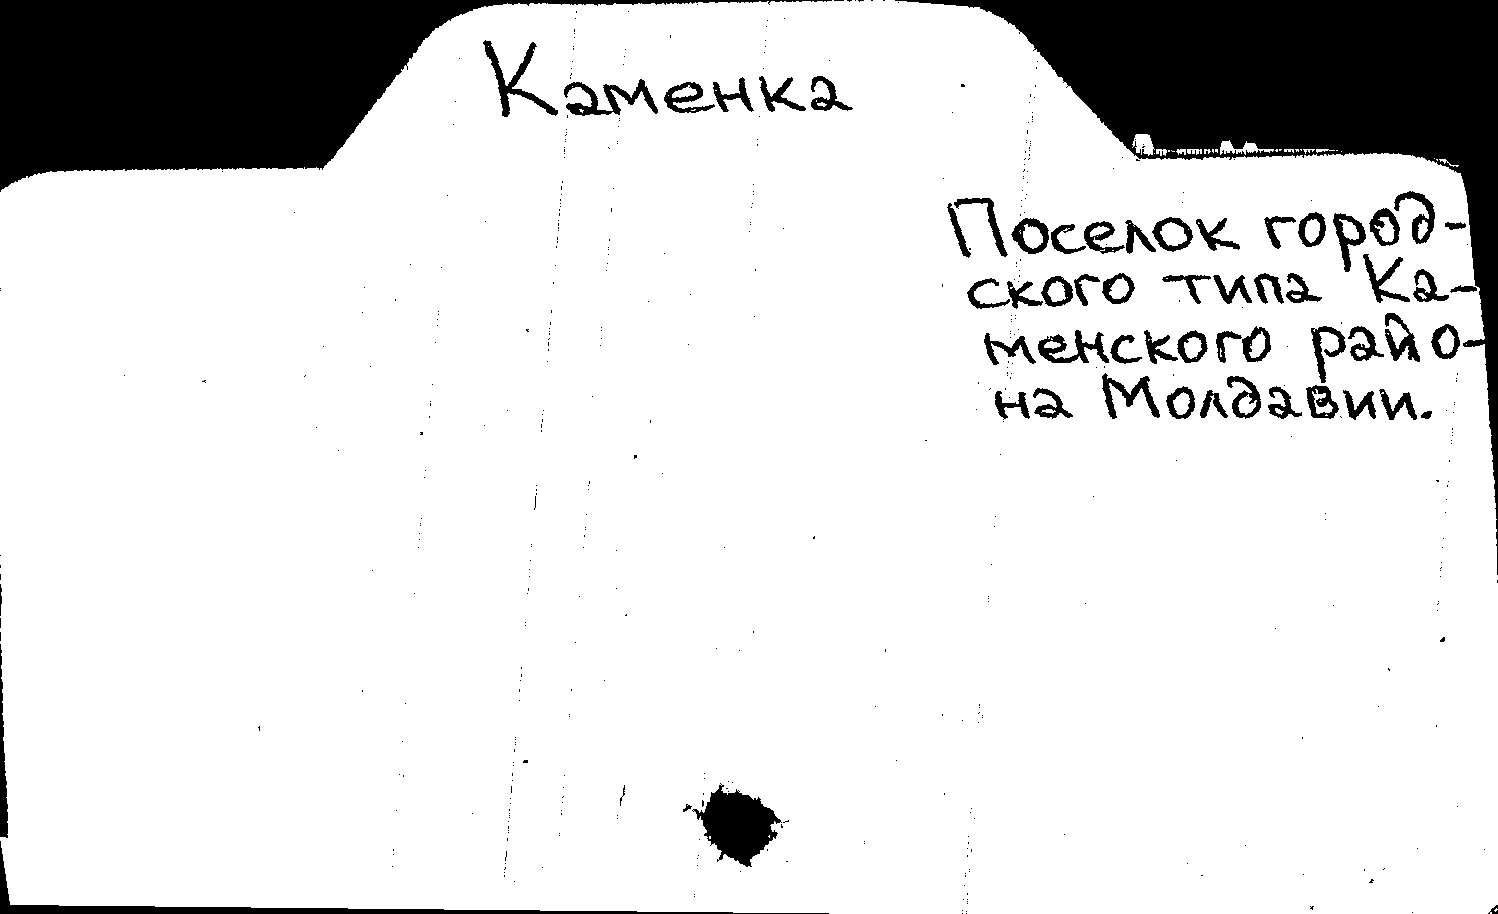 Каменка
Поселок город-
ского типа Ка-
менского райо-
на Молдавии.